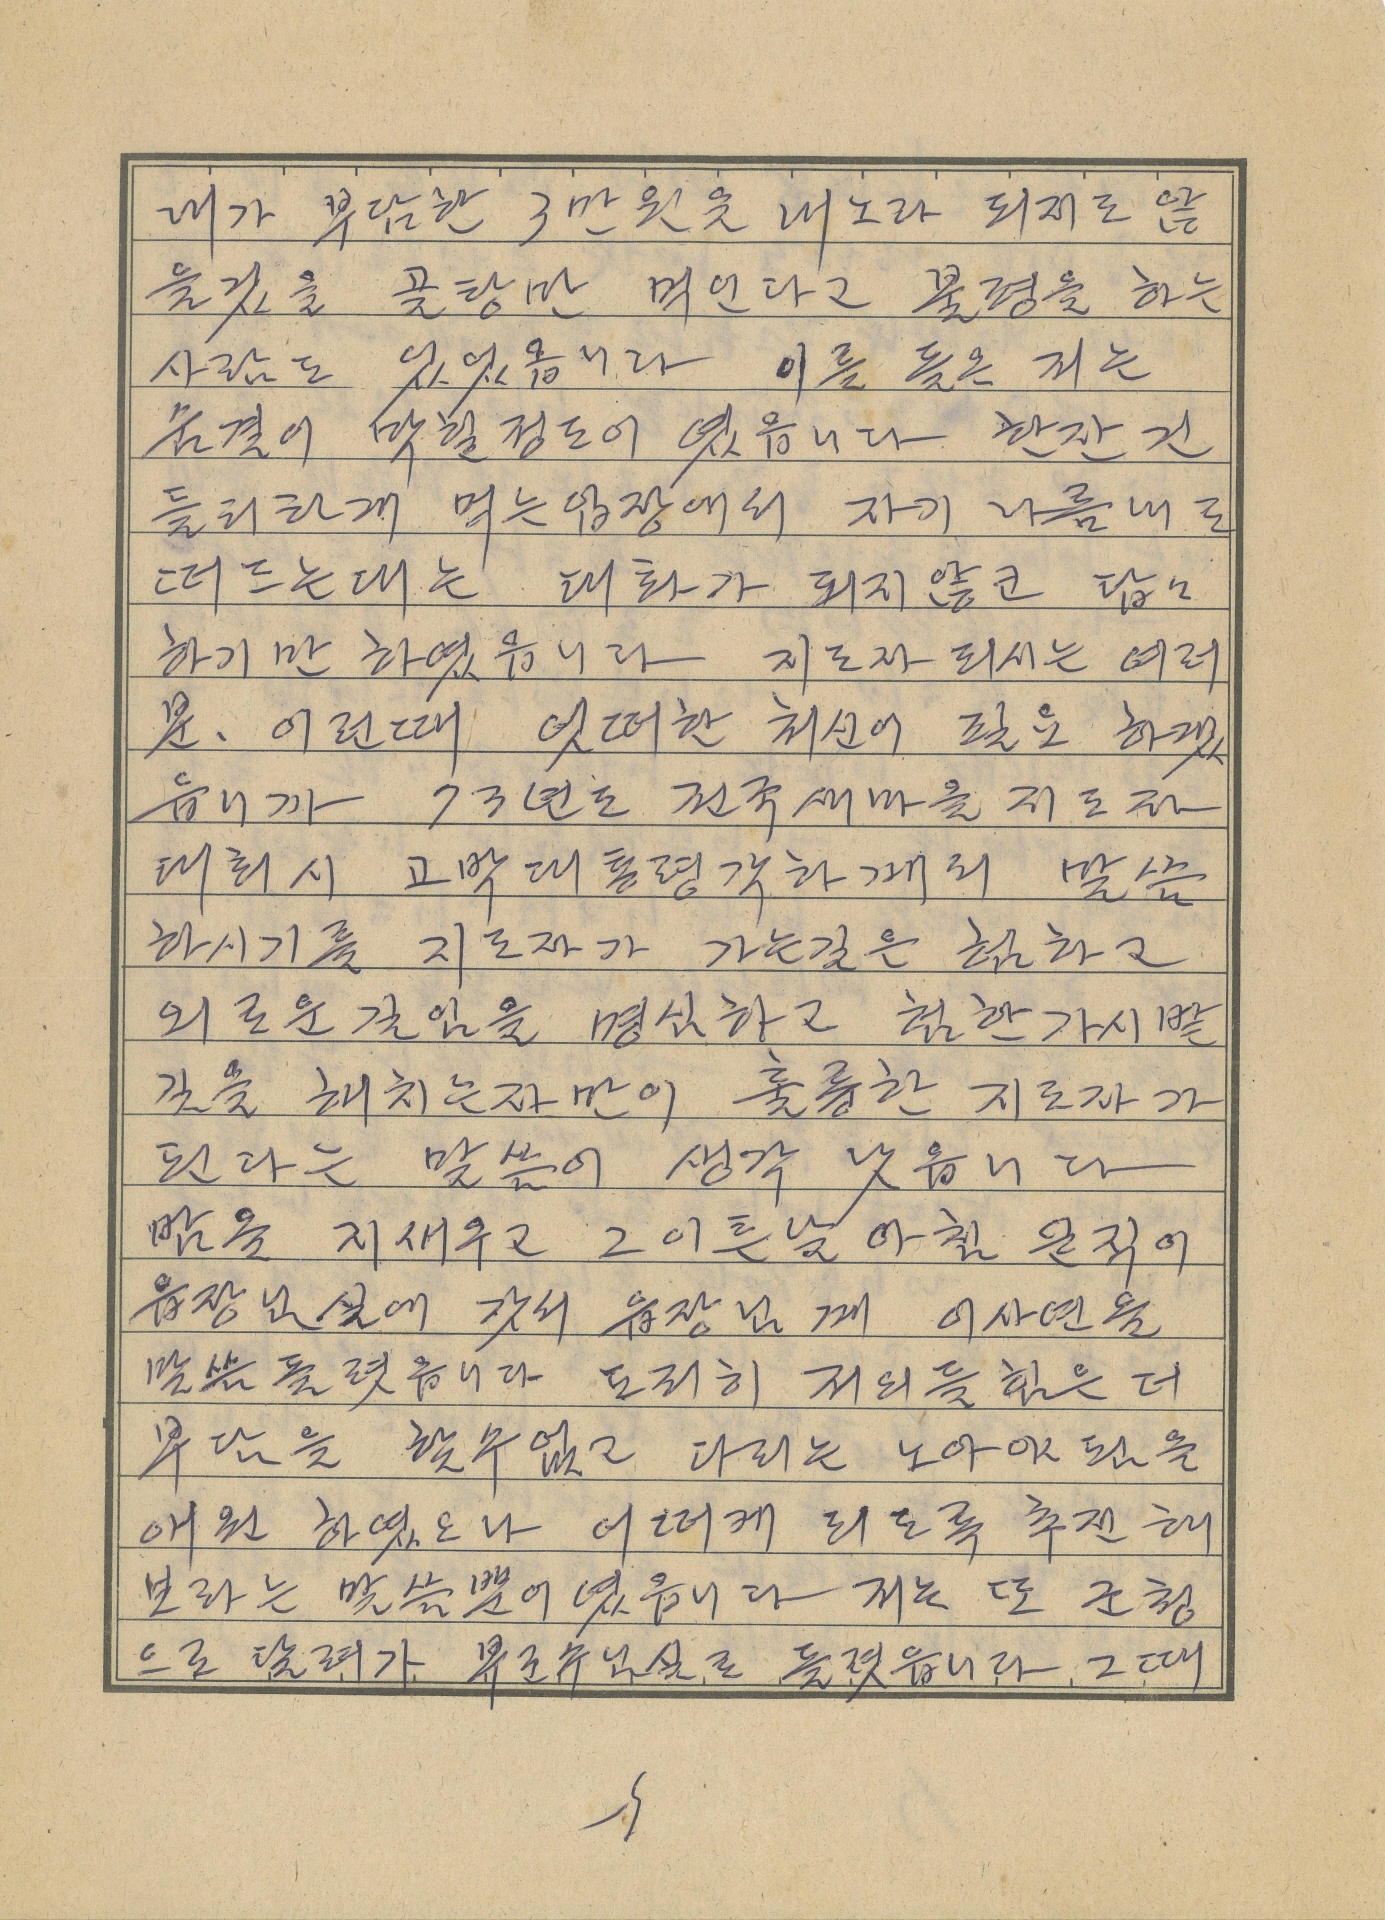 내가 부담한 3만원을 내노라 되지도 않
을것을 골탕만 먹인다고 불평을 하는
사람도 있었읍니다 이를 들은 저는
숨결이 막힐정도이 였읍니다 한잔 건
들되하게 먹는입장에서 자기 나름내로
떠드는대는 대화가 되지않고 답답
하기만 하였읍니다 지도자 되시는 여러
분. 이런때 엇떠한 최선이 필요 하겠
읍니까 73년도 전국새마을지도자
대회시 고박대통령각하께서 말씀
하시기를 지도자가 가는길은 험하고
외로운길임을 명심하고 험한가시밭
길을 해치는자만이 훌륭한 지도자가
된다는 말씀이 생각 낫읍니다
밤을 지새우고 그이튿날아침 일직이
읍장님실에 갓서 읍장님께 이사연을
말씀들렷읍니다 도저히 저의들힘은더
부담을 할수없고 다리는 노아야 됨을
애원 하였으나 어떠케 되도록 추진해
보라는 말씀뿐이였읍니다 저는 또 군청
으로 달려가 부군수님실로 들렷읍니다 그때
5